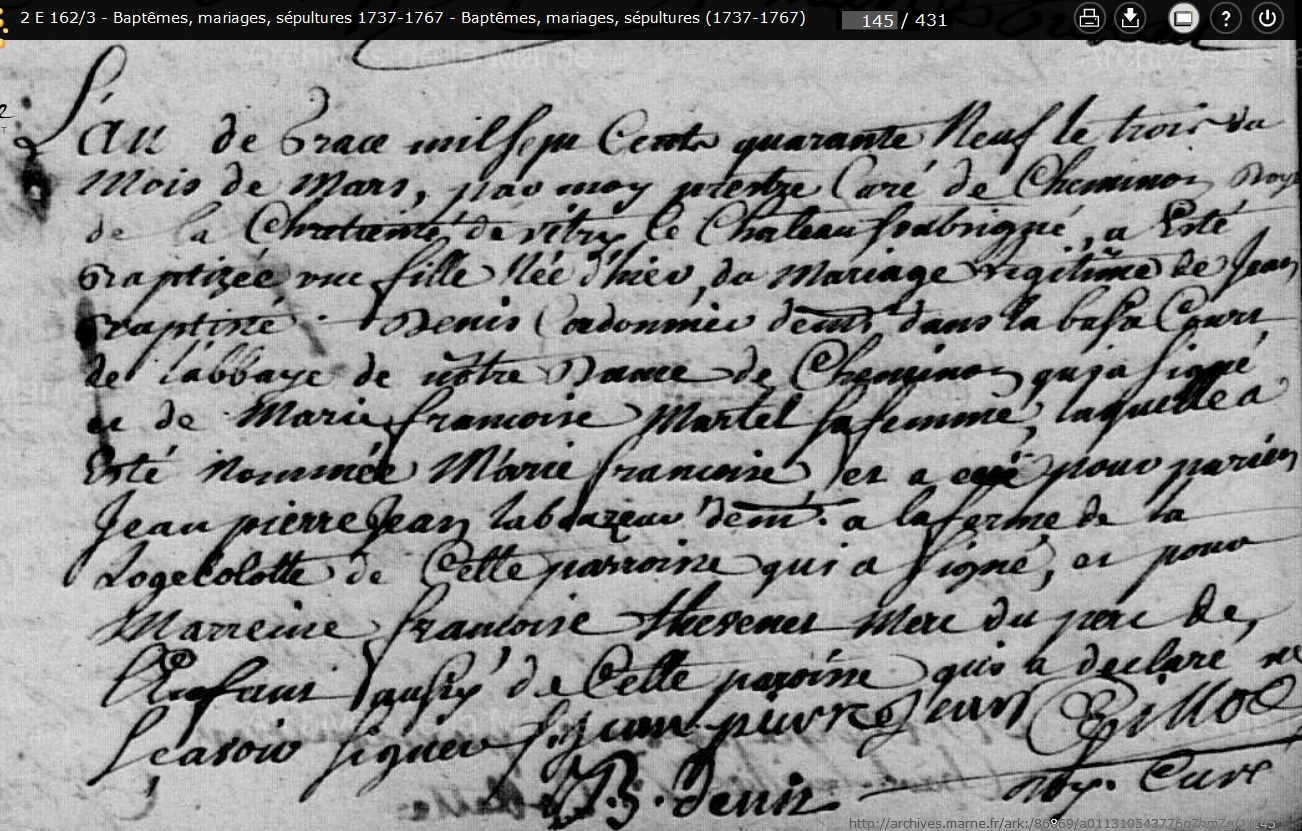 2 E 162/3 - Baptêmes, mariages, sépultures 1737-1767 - Baptêmes, mariages, sépultures (1737-1767) 145 / 431
L'an de Grace mil sept Cents quarante Neuf le trois du
Mois de Mars, par moy prestre Curé de Cheminon Doy
de la Chretienté de vitry le Chateau soubsigné, a Esté
Baptizée une fille Née d'hier, du Mariage legitime de Jean
Baptiste Denis Cordonnier demt dans la basse Court
de l'abbaye de nôtre Dame de Cheminon qui a signé
et de Marie francoise Martel sa femme, laquelle a
Esté nommée Marie francoise et a eut pour parein
Jean pierre Jean laboureur demt. a la ferme de la
Logecolotte de Cette parroisse qui a signé, et pour
Marreine francoise thevenet Mere du pere de
l'Enfant aussy de Cette paroisse qui a declaré ne
scavoir signer jean pierre jean Gillot
J. B. denis doy. Curé
http://archives.marne.fr/ark:/86869/